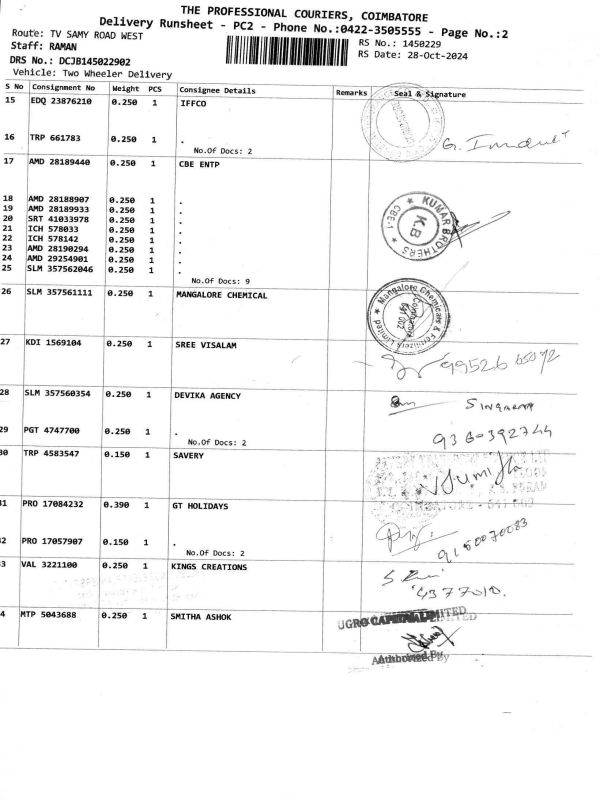 THE PROFESSIONAL COURIERS, COIMBATORE
Delivery Runsheet - PC2 - Phone No.:0422-3505555 - Page No.:2
Route: TV SAMY ROAD WEST
Staff: RAMAN
RS No.: 1450229
DRS No.: DCJB145022902
RS Date: 28-Oct-2024
Vehicle: Two Wheeler Delivery
S No Consignment No Weight PCS Consignee Details Remarks Seal & Signature
15 EDQ 23876210 0.250 1 IFFCO
16 TRP 661783 0.250 1 .
No.Of Docs: 2
17 AMD 28189440 0.250 1 CBE ENTP
18 AMD 28188907 0.250 1 .
19 AMD 28189933 0.250 1 .
20 SRT 41033978 0.250 1 .
21 ICH 578033 0.250 1 .
22 ICH 578142 0.250 1 .
23 AMD 28190294 0.250 1 .
24 AMD 29254901 0.250 1 .
25 SLM 357562046 0.250 1 .
No.Of Docs: 9
KUMAR BROTHERS
K.B
CBE-1
26 SLM 357561111 0.250 1 MANGALORE CHEMICAL
Mangalore Chemicals & Fertilizers Limited
Coimbatore
641 002
27 KDI 1569104 0.250 1 SREE VISALAM
99526 65072
28 SLM 357560354 0.250 1 DEVIKA AGENCY
29 PGT 4747700 0.250 1 .
No.Of Docs: 2
9360392744
30 TRP 4583547 0.150 1 SAVERY
31 PRO 17084232 0.390 1 GT HOLIDAYS
32 PRO 17057907 0.150 1 .
No.Of Docs: 2
9150070083
33 VAL 3221100 0.250 1 KINGS CREATIONS
34 MTP 5043688 0.250 1 SMITHA ASHOK
UGRO CAPITAL LIMITED
Authorized By